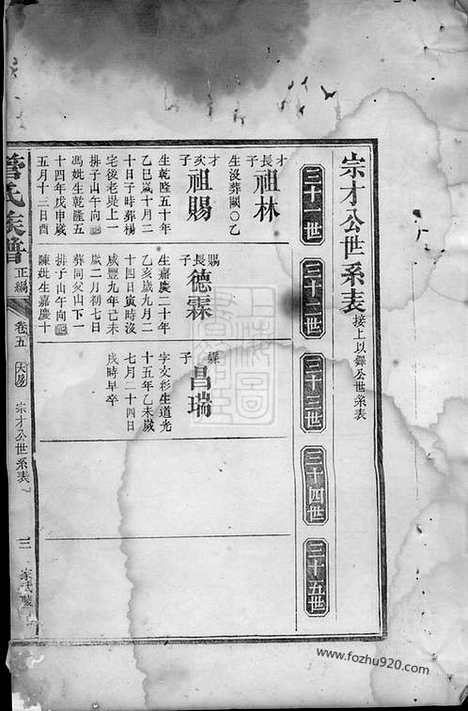 宗才公世系表 接上以舜公世系表
三十一世
三十二世
三十三世
三十四世
三十五世
才長子 祖林
生沒葬闕〇乙
才次子 祖賜
生乾隆五十年
乙巳歲十月二
十日子時葬楊
宅後老堤上一
排子山午向
馮妣生乾隆五
十四年戊申歲
五月十三日酉
賜長子 德霖
生嘉慶二十年
乙亥歲九月二
十四日寅時沒
咸豐九年己未
歲二月初七日
葬同父山下一
排子山午向
陳妣生嘉慶十
霖子 昌瑞
字友彩生道光
十五年乙未歲
七月二十四日
戌時早卒
管氏族譜 正編 卷五 宗才公世系表 三
www.fozhu920.com